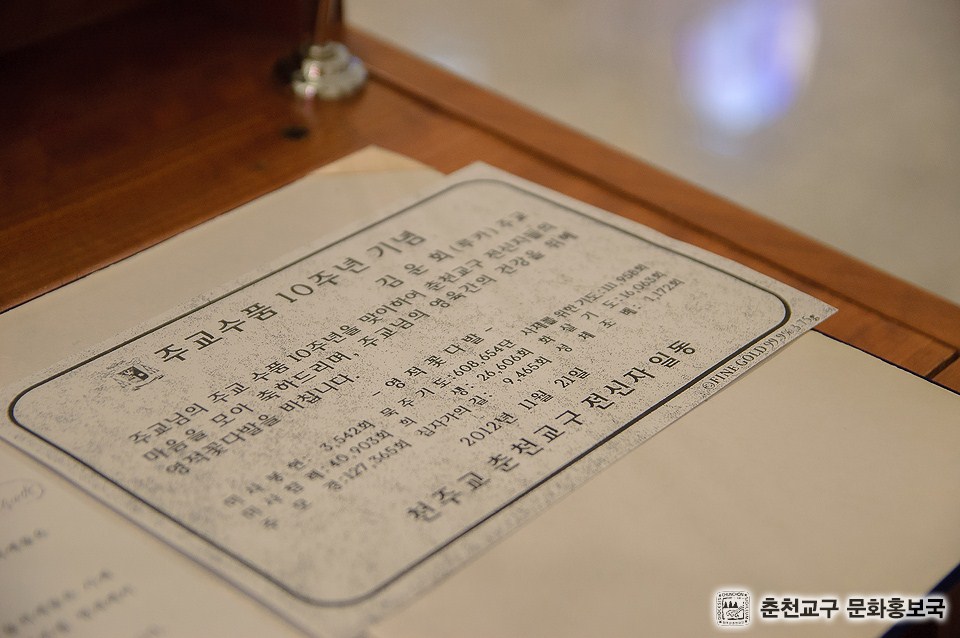 주교수품 10주년 기념
김 운 회 (루카) 주교
주교님의 주교 수품 10주년을 맞이하여 춘천교구 전신자들의
마음을 모아 축하드리며, 주교님의 영육간의 건강을 위해
영적꽃다발을 바칩니다.
- 영 적 꽃 다 발 -
미 사 봉 헌: 3,542회 묵 주 기 도: 608,654단 사제를 위한 기도: 111,958회
미 사 참 례: 40,903회 희 생: 26,606회 화 살 기 도: 16,085회
주 모 경: 127,365회 십자가의 길: 9,465회 성 체 조 배: 7,172회
2012년 11월 21일
천주교 춘천교구 전신자 일동
ⓒFINE GOLD 99.9% 3.75g
춘천교구 문화홍보국